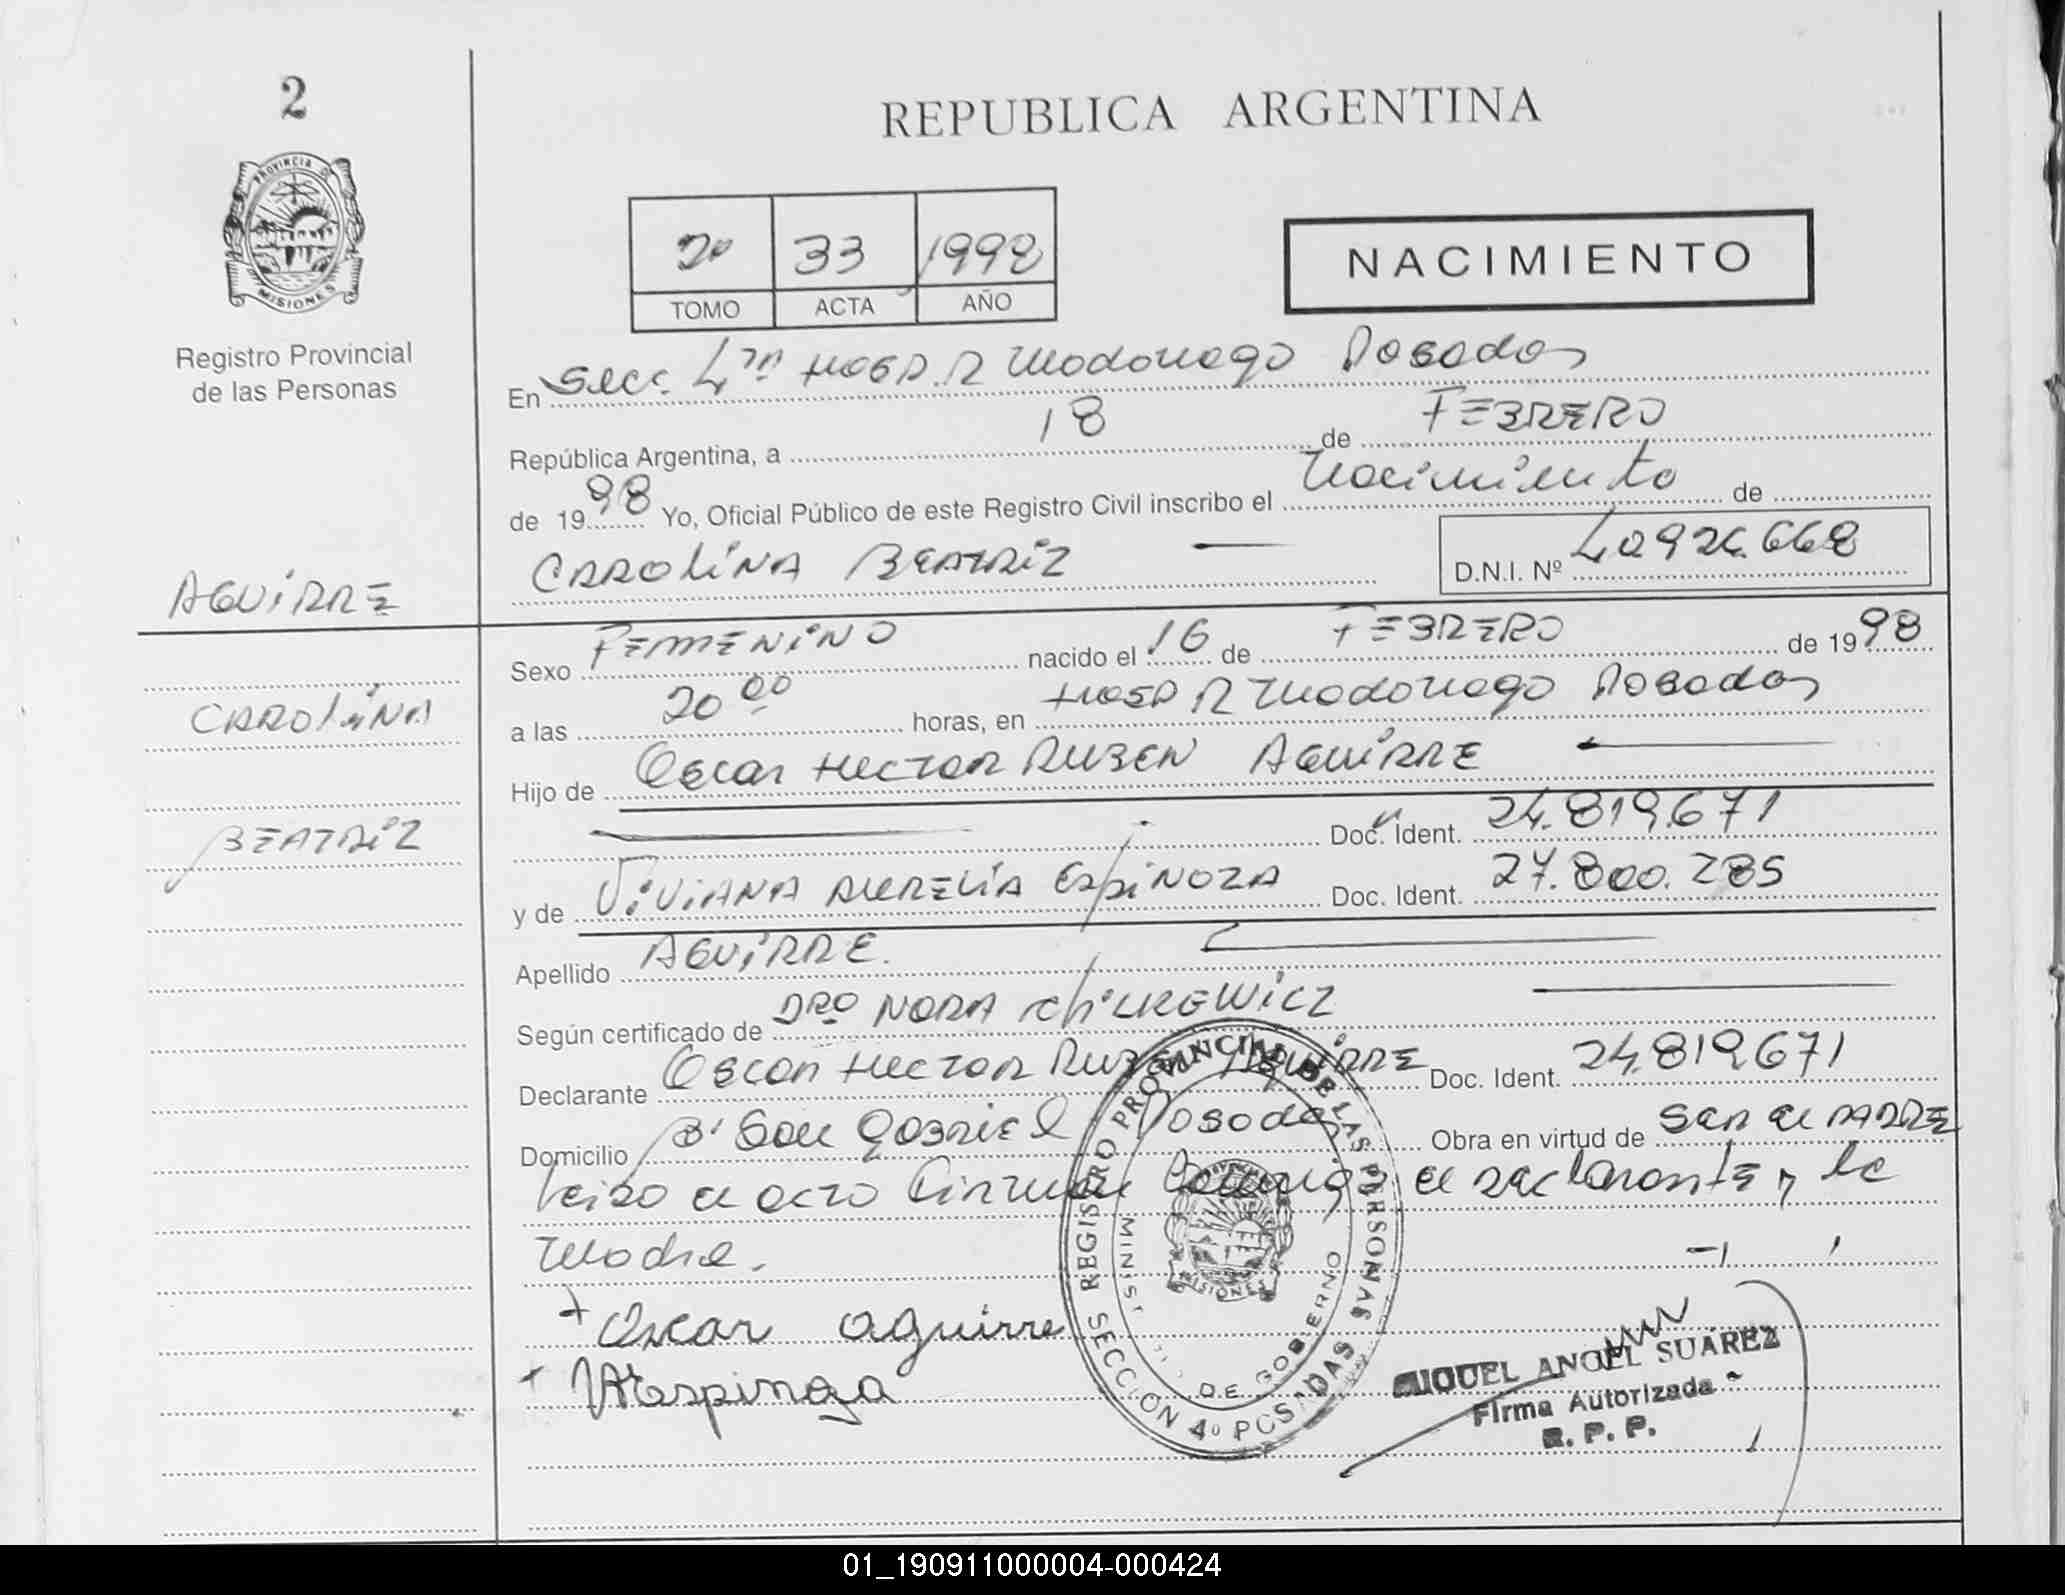 2
REPUBLICA ARGENTINA
PROVINCIA DE
MISIONES
Registro Provincial
de las Personas
2º 33 1998
TOMO ACTA AÑO
NACIMIENTO
En Secc. 4ta Hosp. R Madariaga Posadas
República Argentina, a 18 de FEBRERO
de 1998 Yo, Oficial Público de este Registro Civil inscribo el Nacimiento de
CAROLINA BEATRIZ
D.N.I. Nº 40926.668
AGUIRRE
CAROLINA
BEATRIZ
Sexo FEMENINO nacido el 16 de FEBRERO de 1998
a las 20 00 horas, en HOSP R Madariaga Posadas
Hijo de Oscar Hector RUBEN AGUIRRE
Doc. Ident. 24.819.671
y de VIVIANA AURELIA ESPINOZA Doc. Ident. 27.800.285
Apellido AGUIRRE.
Según certificado de DRA NORA
Declarante Oscar Hector Ruben Aguirre Doc. Ident. 24.819.671
Domicilio Bº San Gabriel Posadas Obra en virtud de Ser el PADRE
Leido el acta Firman Conmigo el declarante y la
Madre.
+ Oscar aguirre
+ VAEspinoza
REGISTRO PROVINCIAL DE LAS PERSONAS
SECCION 4º POSADAS
MINIST DE GOBIERNO
MISIONES
MIGUEL ANGEL SUAREZ
Firma Autorizada
R. P. P.
01_190911000004-000424